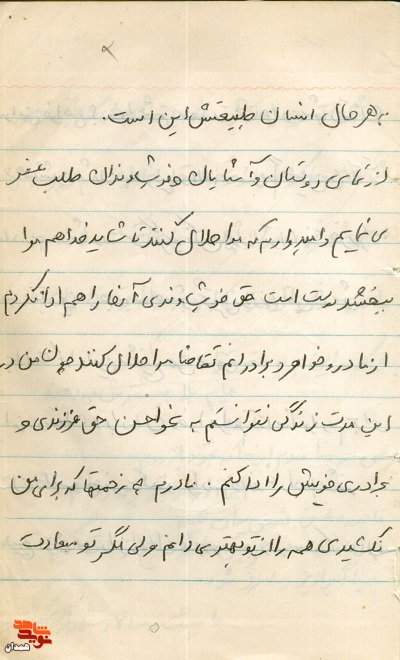 بهرحال انسان طبیعتش این است.
از تمامی دوستان و آشنایان و خویشاوندان طلب عفو
می نمایم و امیدوارم که مرا حلال کنند تا شاید خدا هم مرا
ببخشد درست است حق خویشاوندی آنها را هم ادا نکردم
از مادر و خواهر و برادرانم تقاضا مرا حلال کنند چون من در
این مدت زندگی نتوانستم به نحو احسن حق فرزندی و
برادری خویش را ادا کنم. مادرم چه زحمتها که برای من
نکشیدی همه را از تو بهتر می دانم ولی اگر تو سعادت
نوید شاهد
همدان